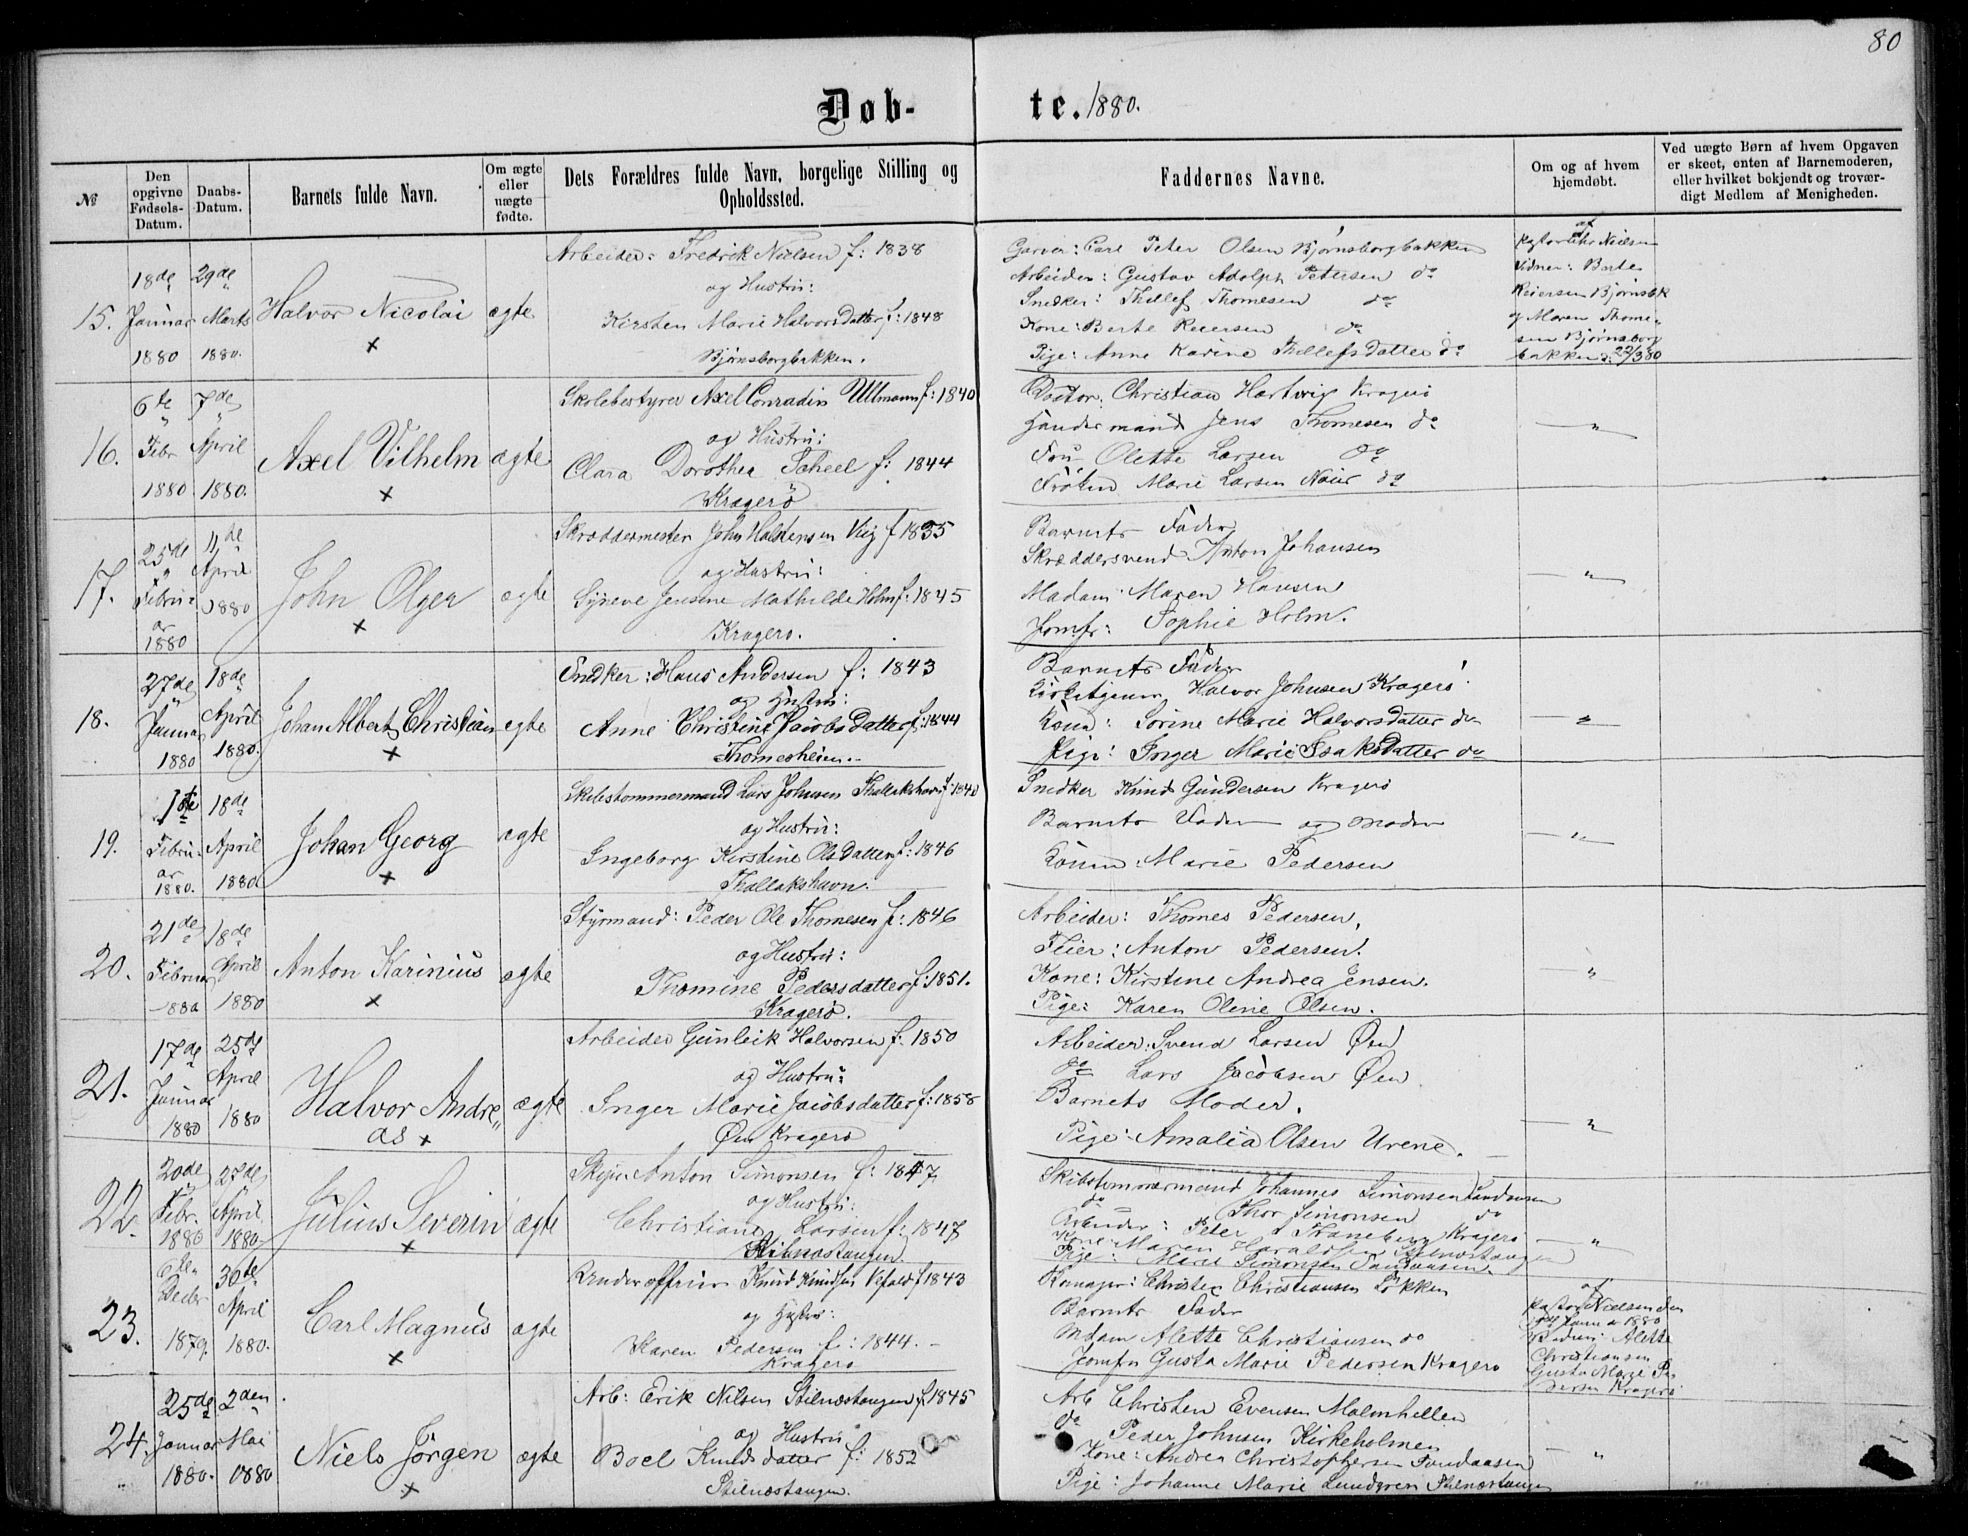 80
Døb-
te. 1880.
№
Den opgivne Fødsels-Datum.
Daabs-Datum.
Barnets fulde Navn.
Om ægte eller uægte fødte.
Dets Forældres fulde Navn, borgelige Stilling og Opholdssted.
Faddernes Navne.
Om og af hvem hjemdøbt.
Ved uægte Børn af hvem Opgaven er skeet, enten af Barnemoderen, eller hvilket bekjendt og troværdigt Medlem af Menigheden.
15.
18de Januar 1880
29de Marts 1880.
Halvor Nicolai
×
ægte
Arbeider: Fredrik Nielsen f: 1838
og Hustru:
Kirsten Marie Halvorsdatter f: 1848
Bjørnsborgbakken.
Garver: Carl Peter Olsen Bjørnsborgbakken
Arbeider: Gustav Adolph Pettersen do
Snedker: Thellef Thomesen do
Kone: Berte Reiersen do
Pige: Anne Karine Thellefsdatter do
af
Nielsen
Vidner: Berte
Reiersen Bjørnsbk
og Maren Thome-
sen Bjørnsborg
bakken d. 22/3 80
16.
6te Febr 1880
7de April 1880.
Axel Vilhelm
×
ægte
Skolebestyrer Axel Conradin Ullmann f: 1840
og Hustru:
Clara Dorothea Scheel f: 1844
Kragerø
Doctor: Christian Hartvig Kragerø
Jens Thomesen do
Fru Olette Larsen do
Frøken Marie Larsen do
"
17.
25de Febru-ar 1880
11de April 1880
John Olger
×
ægte
Skræddermester John Halstensen Vig f 1835
og Hustru:
Jensine Mathilde Holm f: 1845
Kragerø.
Barnets Fader
Skræddersvend Anton Johansen
Madam Maren Hansen
Jomfr: Sophie Holm.
"
18.
27de Januar 1880
18de April 1880.
Johan Albert Christian
×
ægte
Snedker: Hans Andersen f: 1843
og Hustru:
Anne Christine Jacobsdatter f: 1844
Thomesheien.
Barnets Fader
Halvor Johnsen Kragerø
Kone: Sorine Marie Halvorsdatter do
Pige: Inger Marie Isaksdatter do
"
19.
1ste Febru-ar 1880.
18de April 1880
Johan Georg
×
ægte
Skibstømmermand Lars Johnsen Thallakshavn f: 1840
og Hustru:
Ingeborg Kirstine Olsdatter f: 1846
Thallakshavn.
Snedker Knud Gundersen Kragerø
Barnets Fader og Moder
Marie Pedersen
"
20.
21de Februar 1880
18de April 1880
Anton Karinius
×
ægte
Styrmand: Peder Ole Thomesen f: 1846
og Hustru:
Thomine Pedersdatter f: 1851.
Kragerø.
Arbeider: Thomes Pedersen,
Feier: Anton Pedersen.
Kone: Kirstine Andrea Jensen.
Pige: Karen Oline Olsen.
"
21.
17de Januar 1880
25de April 1880
Halvor Andre„
as ×
ægte
Arbeider Gunleik Halvorsen f: 1850
og Hustru:
Inger Marie Jacobsdatter f: 1858
Øen Kragerø
Arbeider: Svend Larsen Øen
do Lars Jacobsen Øen
Barnets Moder.
Pige: Amalia Olsen Urene.
"
22.
20de Febr. 1880
27de April 1880
Julius Severin
×
ægte
Anton Simonsen f: 1847
og Hustru:
Christiane Larsen f: 1847
Stilnæstangen
Skibstømmermand Johannes Simonsen Sandaasen
do Thor Simonsen do
Arbeider: Peter Kragerø
Kone: Maren Haraldsen Stilnæstangen
Pige: Marie Simonsen Sandaasen.
"
23.
Decbr 1879.
30te April 1880.
Carl Magnus
×
ægte
Underofficier Knud Knudsen Vefald f 1843
og Hustru:
Karen Pedersen f: 1844.
Kragerø
Christen Christiansen Løkken
Barnets Fader
Mdam Alette Christiansen do
Jomfr Gusta Marie Pedersen Kragerø
af
Pastor Nielsen den
1880
Alette
Christiansen
Gusta Marie Pe-
dersen Kragerø
24.
25de Januar 1880.
2den Mai 1880
Niels Jörgen
×
ægte
Arb: Erik Nilsen Stilnæstangen f 1845
og Hustru
Boel Knudsdatter f: 1852
Stilnæstangen.
Arb Christen Evensen Malmhellen
do Peder Johnsen Kirkeholmen
Kone: Andrea Christophersen Sandaasen
Pige: Johanne Marie Lundgren Stilnæstangen
"